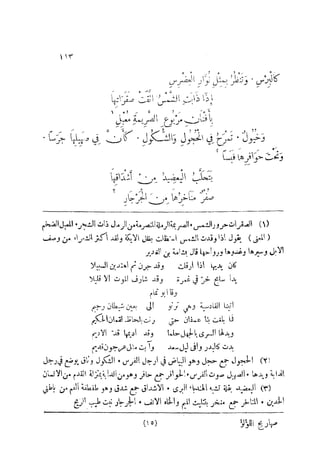 ١١٣
كالبرس . وتنظر بمثل نوار العضرس
إذا ذابت الشمس اتقت صقراتها
بأفنان مربوع الصريمة معبل (١)
وخيول . تمرح في الحجول والشكول . كأن في صهيلها جرسا .
وتحت حوافرها قبسا (٢)
يتحلب اليعضيد من أشداقها
صفر مناخرها من الجرجار (٣)
(١) الصقرات حرور الشمس . الصريمة الرملة المنصرمة من الرمال ذات الشجر . المعبل الضخم
(المعنى) يقول اذا وقدت الشمس استظلت بظل الايكة وقد أكثر الشعراء من وصف
الابل وسيرها وغدوها ورواحها قال بشامة بن الغدير
كأن يديها اذا أرقلت وقد جرن ثم اهتدين السبيلا
يدا سابح خر في غمرة وقد شارف الموت الا قليلا
وقال أبو تمام
أتينا القادسية وهي ترنو الى بعين شيطان رجيم
فما بلغت بنا عسفان حتى رنت بلحاظ لقمان الحكيم
وبدلها السرى بالجهل حلما وقد أديمها قد الاديم
بدت كالبدر وافى ليل سعد وآبت مثل عرجون قديم
(٢) الحجول جمع حجل وهو البياض في أرجل الفرس . الشكول وثاق يوضع في رجل
الدابة ويدها . الصهيل صوت الفرس . الحوافر جمع حافر وهو من الدابة بمنزلة القدم من الانسان
(٣) اليعضيد بقلة تشبه الهندباء البرى . الاشداق جمع شدق وهو طفطفة الفم من باطن
الخدين . المناخر جمع منخر بتثليث الميم والخاء الانف . الجرجار نبت طيب الريح
(١٥)
صهاريج اللؤلؤ